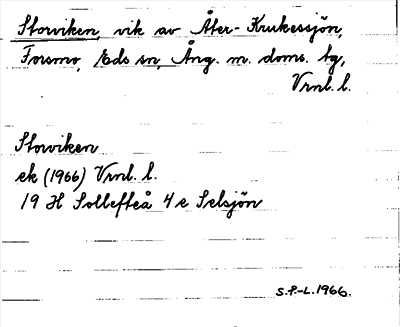 Storviken, vik av Åter-Krukessjön,
Forsmo, Eds sn, Ång. m. doms. tg,
Vrnl. l.
Storviken
ek (1966) Vrnl. l.
19 H Sollefteå 4 e Selsjön
S.P.-L. 1966.